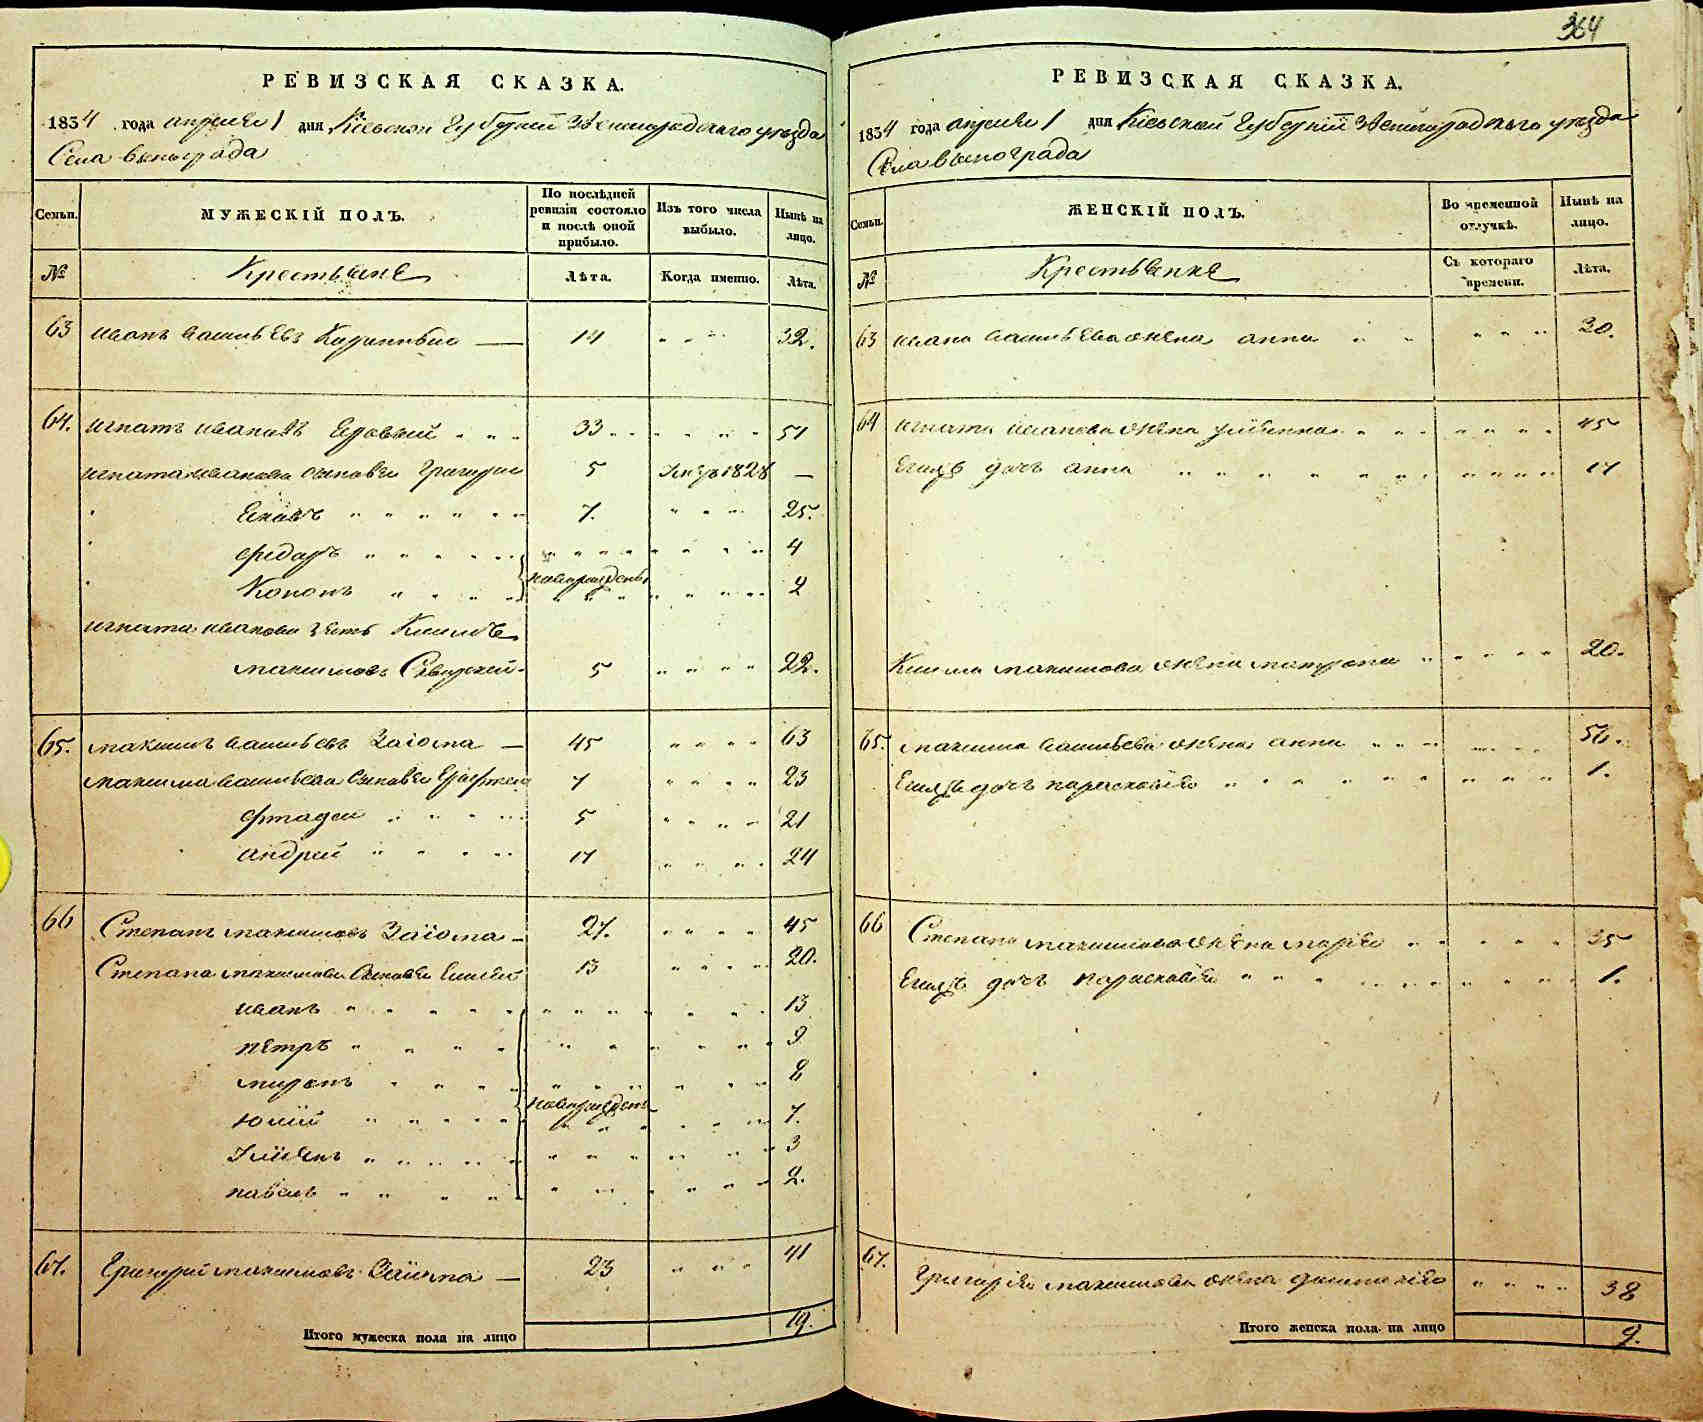 РЕВИЗСКАЯ СКАЗКА.
1834 года апреля 1 дня Кіевской Губерніи Звенигородскаго уезда
Села винограда
Семьи. МУЖЕСКІЙ ПОЛЪ. По послѣдней ревизіи состояло и послѣ оной прибыло. Изъ того числа выбыло. Нынѣ на лицо.
№ Крестьяне Лѣта. Когда именно. Лѣта.
63 иванъ васильевъ 14 32.
64. игнатъ ивановъ 33 51
игната иванова сыновья Григорий 5 1828 —
Яковъ 7. 25.
федоръ 4
Кононъ новорожден 2
игната иванова зять Климъ
максимовъ 5 22.
65. максимъ васильевъ Заіома — 45 63
максима васильева сыновья 23
фтадеи 5 21
андрей 24
66 Степанъ максимовъ Заіома — 27. 45
Степана максимова сыновья 13 20.
иванъ 13
петръ 9
миронъ 8
новорожден 7.
3
павелъ 2.
67. Григорий максимовъ Заіома — 23 41
Итого мужеска пола на лицо 19.
364
РЕВИЗСКАЯ СКАЗКА.
1834 года апреля 1 дня Кіевской Губерніи Звенигородскаго уезда
Села винограда
Семьи. ЖЕНСКІЙ ПОЛЪ. Во временной отлучкѣ. Нынѣ на лицо.
№ Крестьянке Съ котораго времени. Лѣта.
63 ивана васильева жена анна 30.
64 игната иванова жена 45
Егожъ дочь анна
Клима максимова жена матрона 20.
65. максима васильева жена анна
Егожъ дочь параскавия 1.
66 Степана максимова жена мария 35
Егожъ дочь параскавия 1.
67. Григория максимова жена 38
Итого женска пола на лицо 9.